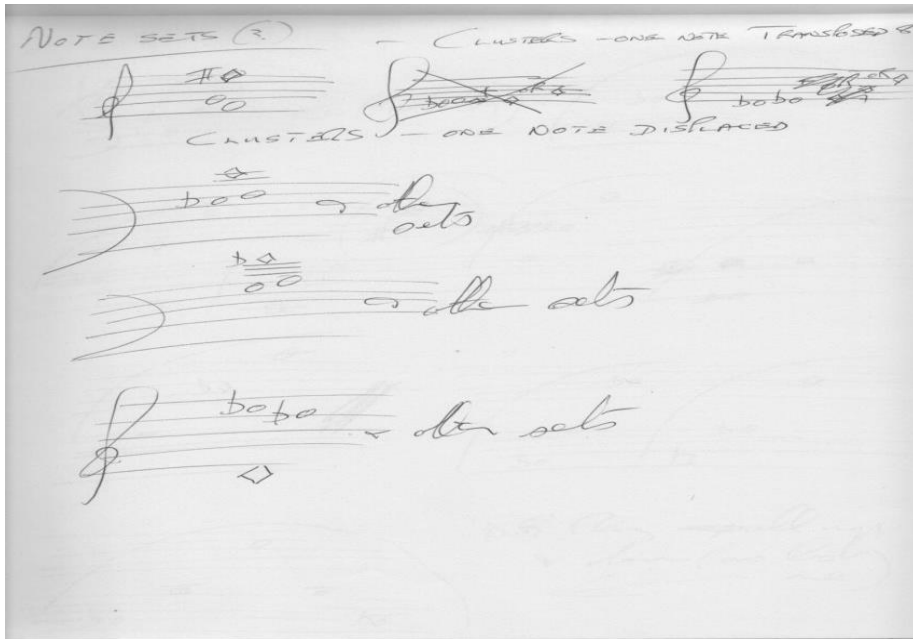 NOTE SETS (?)
- CLUSTERS - ONE NOTE TRANSPOSED 8
CLUSTERS - ONE NOTE DISPLACED
other
sets
other sets
other sets